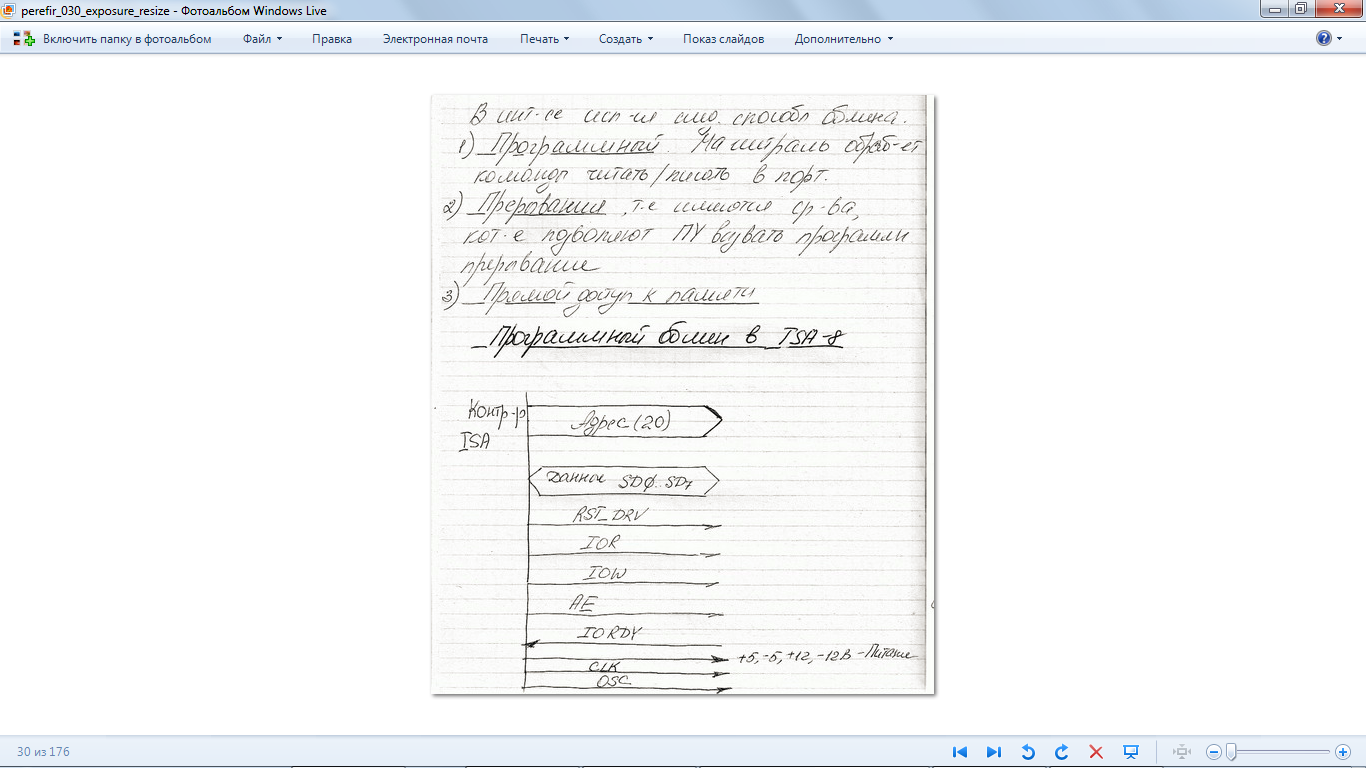 perefir_030_exposure_resize - Фотоальбом Windows Live
Включить папку в фотоальбом Файл Правка Электронная почта Печать Создать Показ слайдов Дополнительно
В инт-се исп-ся след. способы обмена.
1) Программный. Магистраль обраб-ет
команды читать/писать в порт.
2) Прерывания, т.е имеются ср-ва,
кот-е подволяют ПУ вызвать программн
прерывание
3) Прямой доступ к памяти
Программный обмен в ISA-8
Контр-р
ISA
Адрес (20)
Данные SD0..SD7
RST_DRV
IOR
IOW
AE
IORDY
+5, -5, +12, -12В - Питание
CLK
OSC
30 из 176